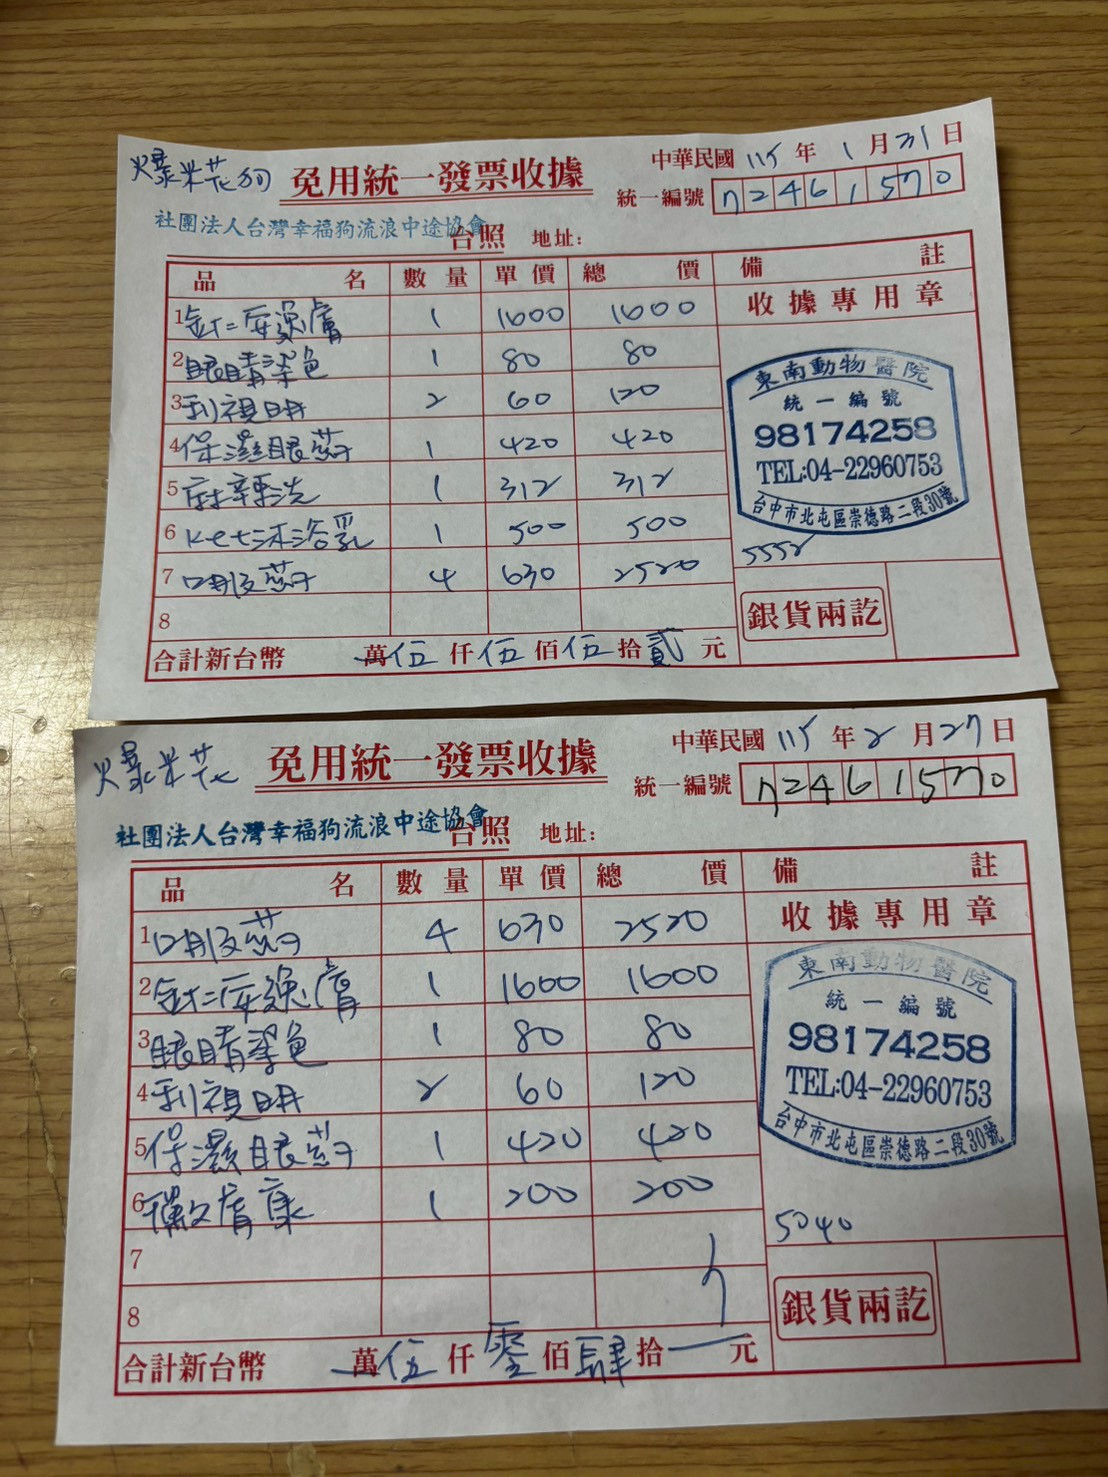 爆米花狗 免用統一發票收據 中華民國 115 年 1 月 31 日
統一編號 72461570
社團法人台灣幸福狗流浪中途協會 台照 地址:
品名 數量 單價 總價 備註
1 1 1600 1600 收據專用章
2 眼睛染色 1 80 80
3 利視明 2 60 120
4 保濕眼藥 1 420 420
5 1 312 312
6 Ket沐浴乳 1 500 500
7 口服藥 4 630 2520
8
東南動物醫院
統一編號
98174258
TEL:04-22960753
台中市北屯區崇德路二段30號
5552
銀貨兩訖
合計新台幣 萬伍仟伍佰伍拾貳元
爆米花 免用統一發票收據 中華民國 115 年 2 月 27 日
統一編號 72461570
社團法人台灣幸福狗流浪中途協會 台照 地址:
品名 數量 單價 總價 備註
1 口服藥 4 630 2520 收據專用章
2 1 1600 1600
3 眼睛染色 1 80 80
4 利視明 2 60 120
5 保濕眼藥 1 420 420
6 黴膚康 1 200 200
7
8
東南動物醫院
統一編號
98174258
TEL:04-22960753
台中市北屯區崇德路二段30號
5040
銀貨兩訖
合計新台幣 萬伍仟零佰肆拾 元